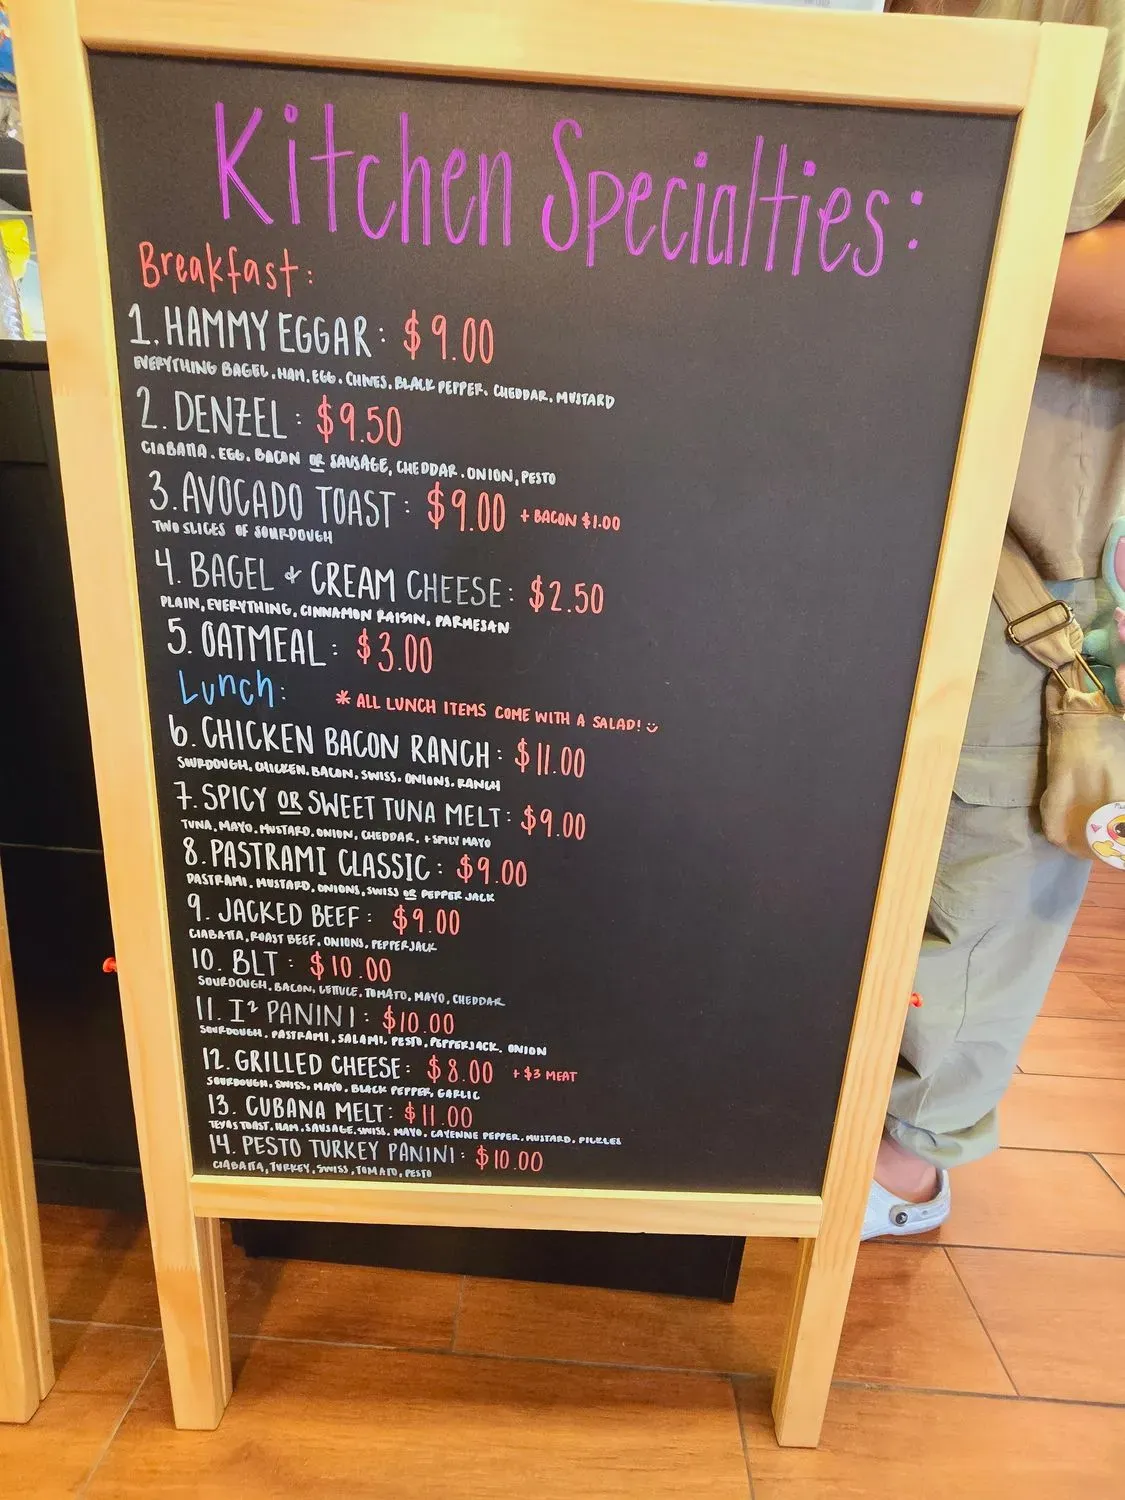 Kitchen Specialties:
Breakfast:
1. HAMMY EGGAR: $9.00
EVERYTHING BAGEL, HAM, EGG, CHIVES, BLACK PEPPER, CHEDDAR, MUSTARD
2. DENZEL: $9.50
CIABATTA, EGG, BACON OR SAUSAGE, CHEDDAR, ONION, PESTO
3. AVOCADO TOAST: $9.00 + BACON $1.00
TWO SLICES OF SOURDOUGH
4. BAGEL & CREAM CHEESE: $2.50
PLAIN, EVERYTHING, CINNAMON RAISIN, PARMESAN
5. OATMEAL: $3.00
Lunch: * ALL LUNCH ITEMS COME WITH A SALAD!
6. CHICKEN BACON RANCH: $11.00
SOURDOUGH, CHICKEN, BACON, SWISS, ONIONS, RANCH
7. SPICY OR SWEET TUNA MELT: $9.00
TUNA, MAYO, MUSTARD, ONION, CHEDDAR, + SPICY MAYO
8. PASTRAMI CLASSIC: $9.00
PASTRAMI, MUSTARD, ONIONS, SWISS OR PEPPER JACK
9. JACKED BEEF: $9.00
CIABATTA, ROAST BEEF, ONIONS, PEPPERJACK
10. BLT: $10.00
SOURDOUGH, BACON, LETTUCE, TOMATO, MAYO, CHEDDAR
11. I² PANINI: $10.00
SOURDOUGH, PASTRAMI, SALAMI, PESTO, PEPPERJACK, ONION
12. GRILLED CHEESE: $8.00 + $3 MEAT
SOURDOUGH, SWISS, MAYO, BLACK PEPPER, GARLIC
13. CUBANA MELT: $11.00
TEXAS TOAST, HAM, SAUSAGE, SWISS, MAYO, CAYENNE PEPPER, MUSTARD, PICKLES
14. PESTO TURKEY PANINI: $10.00
CIABATTA, TURKEY, SWISS, TOMATO, PESTO